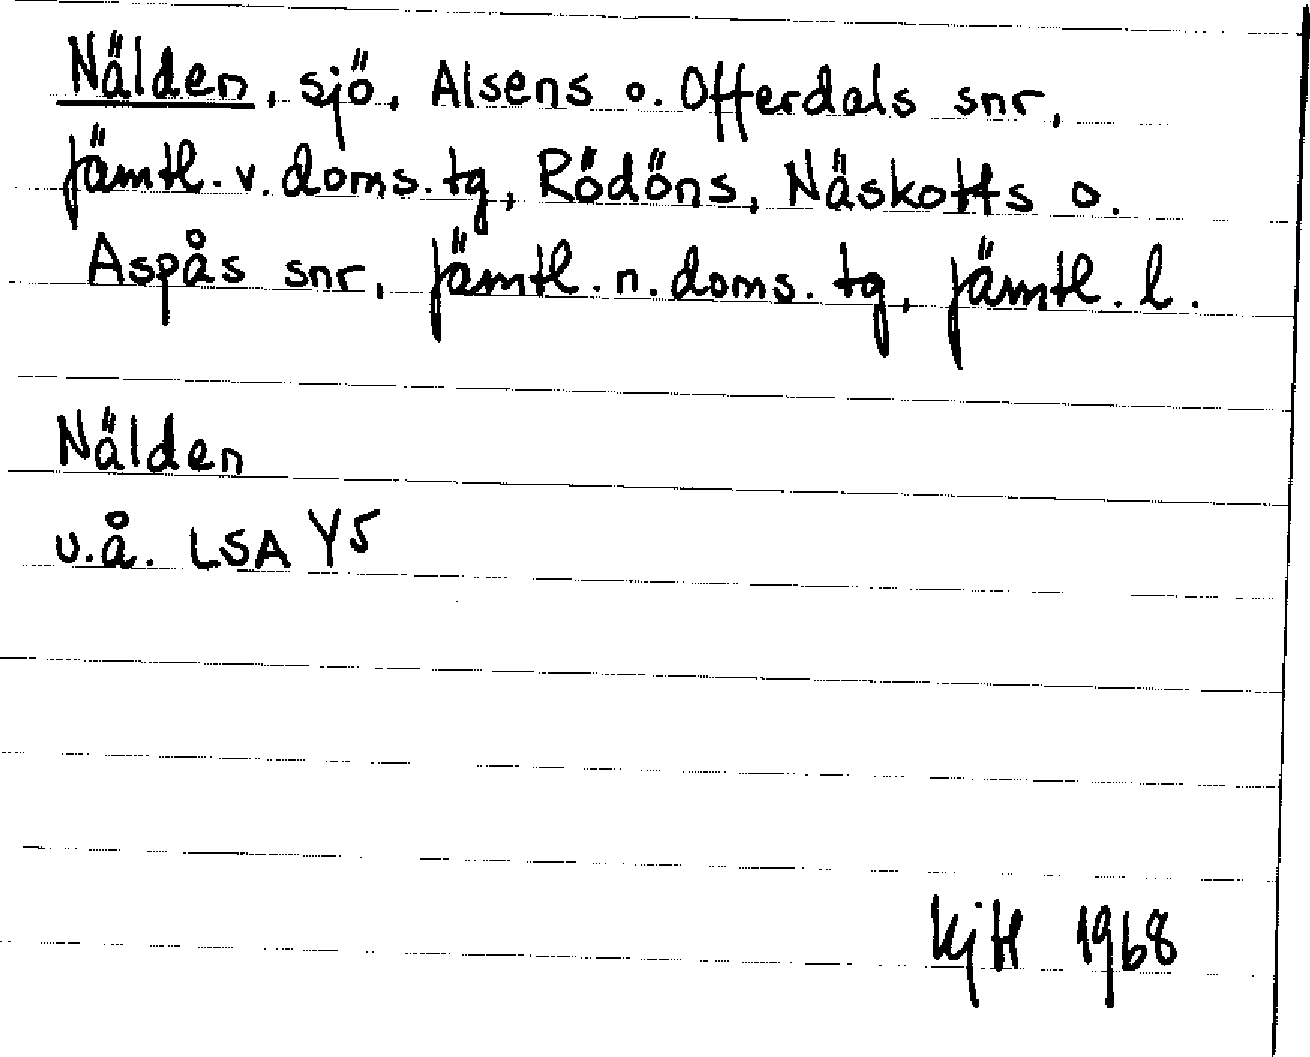 Nälden, sjö, Alsens o. Offerdals snr,
Jämtl. v. doms. tg, Rödöns, Näskotts o.
Aspås snr, Jämtl. n. doms. tg, Jämtl. l.
Nälden
u.å. LSA Y5
KjH 1968